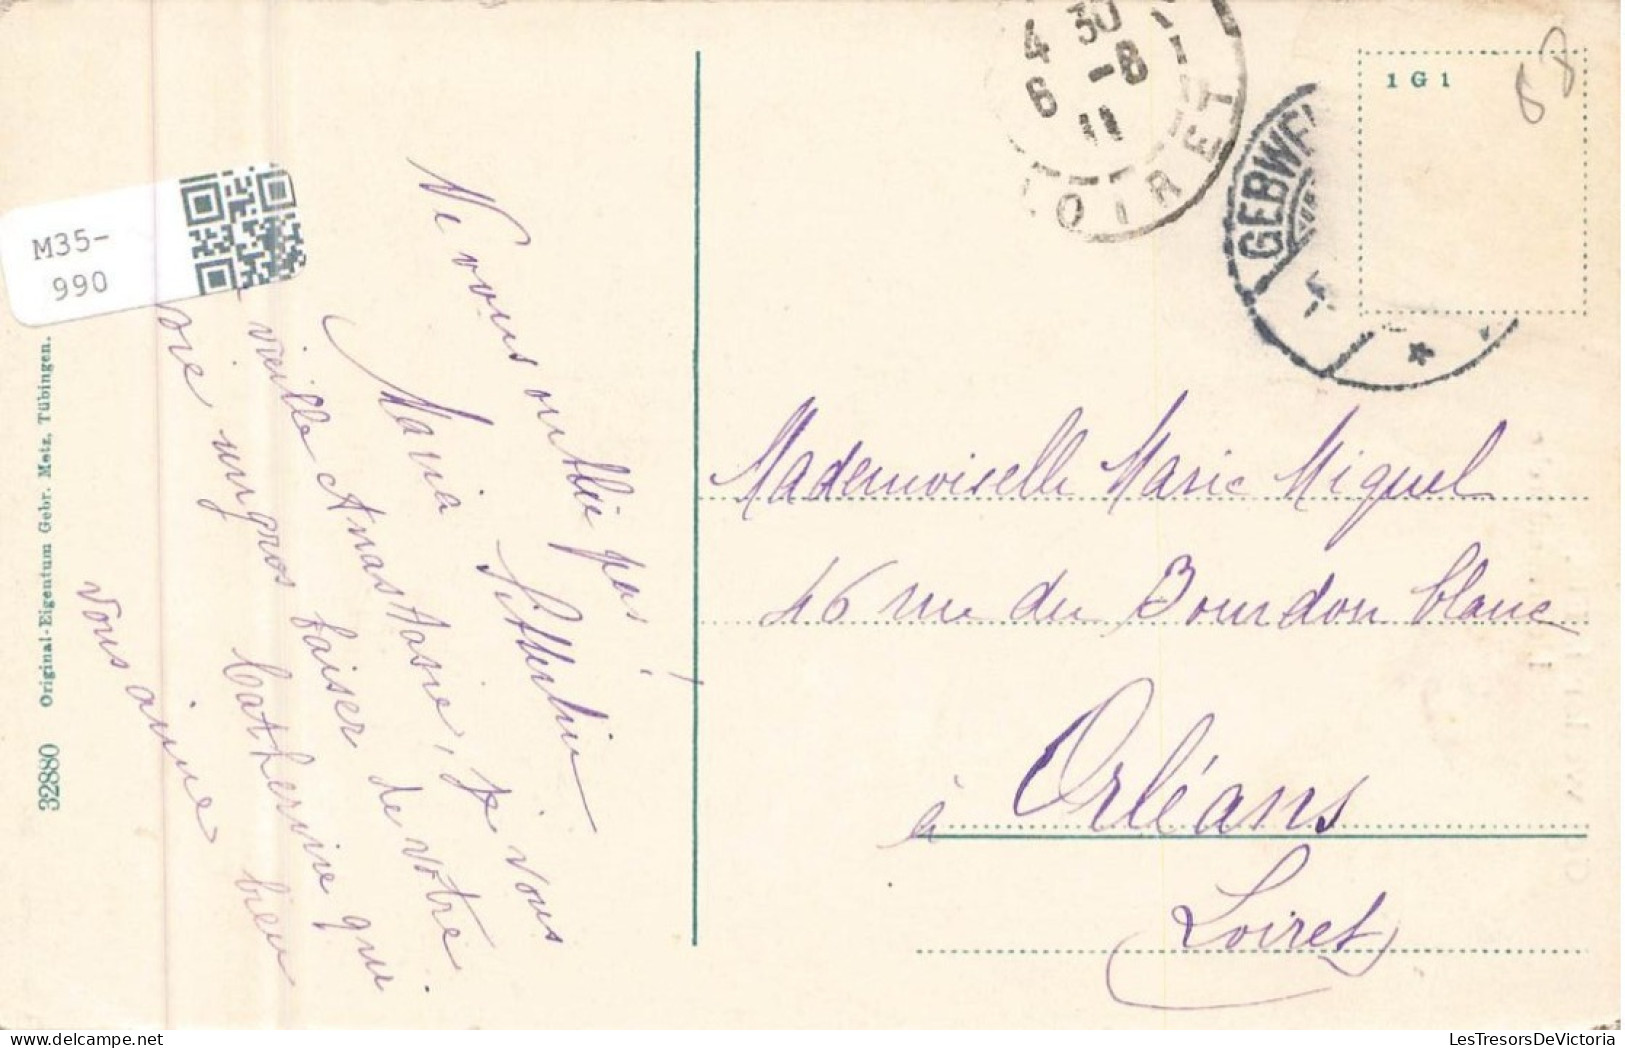 4 30
6 -8
11
LOIRET
GEBWEI
1 G 1
88
M35-
990
32880 Original-Eigentum Gebr. Metz, Tübingen.
N'e vous oublie pas!
Maria Sitterlin
vieille Anastasie, je vous
un gros baiser de votre
Catherine qui
vous aime bien
Mademoiselle Marie Miquel
46 rue du Bourdon blanc
à Orléans
Loiret
LesTresorsDeVictoria